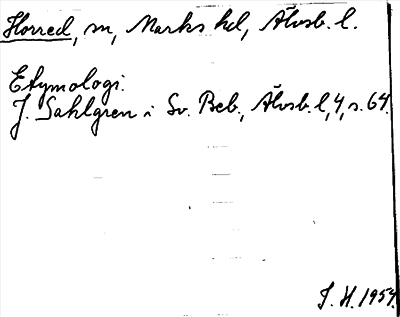 Horred, sn, Marks hd, Älvsb. l.
Etymologi.
J. Sahlgren i Sv. Beb., Älvsb. l, 4, s. 64.
J. H. 1954.